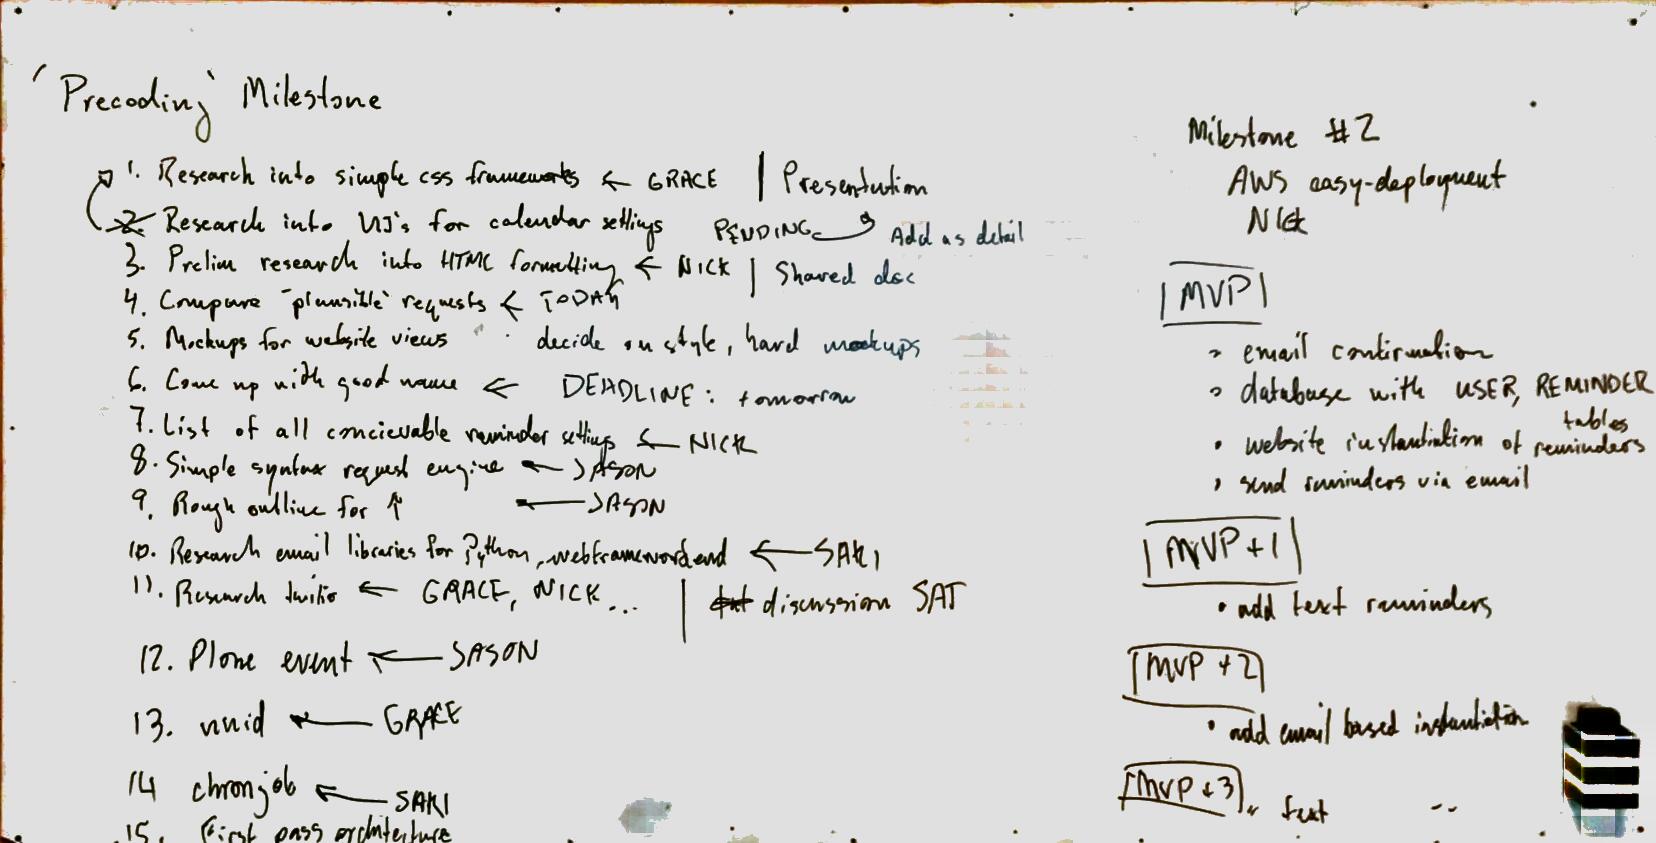 'Precoding' Milestone
1. Research into simple css frameworks ← GRACE | Presentation
2. Research into UI's for calendar settings PENDING Add as detail
3. Prelim research into HTML formatting ← NICK | Shared doc
4. Compare "plausible" requests ← TODAY
5. Mockups for website views decide on style, hard mockups
6. Come up with good name ← DEADLINE: tomorrow
7. List of all concievable reminder settings ← NICK
8. Simple syntax request engine ← JASON
9. Rough outline for ↑ ← JASON
10. Research email libraries for Python, ← SAKI
11. Research twilio ← GRACE, NICK... | discussion SAT
12. Plone event ← JASON
13. uuid ← GRACE
14 chronjob ← SAKI
15. First pass architecture
Milestone #2
AWS easy-deployment
NICK
MVP
• email confirmation
• database with USER, REMINDER
tables
• website instantiation of reminders
• send reminders via email
MVP+1
• add text reminders
MVP+2
• add email based instantiation
MVP+3
" text "